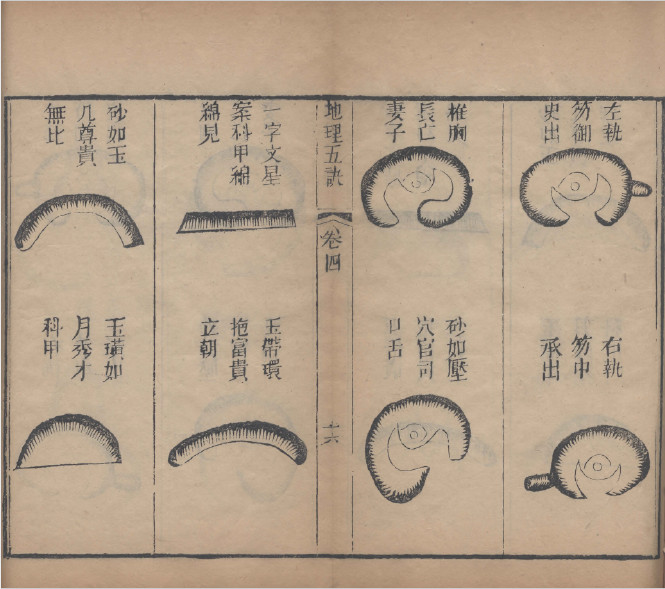 左執
笏御
史出
右執
笏中
丞出
椎胸
長亡
妻子
砂如壓
穴官司
口舌
地理五訣
卷四
十六
一字文星
案科甲綿
綿見
玉帶環
抱富貴
立朝
砂如玉
几尊貴
無比
玉璜如
月秀才
科甲